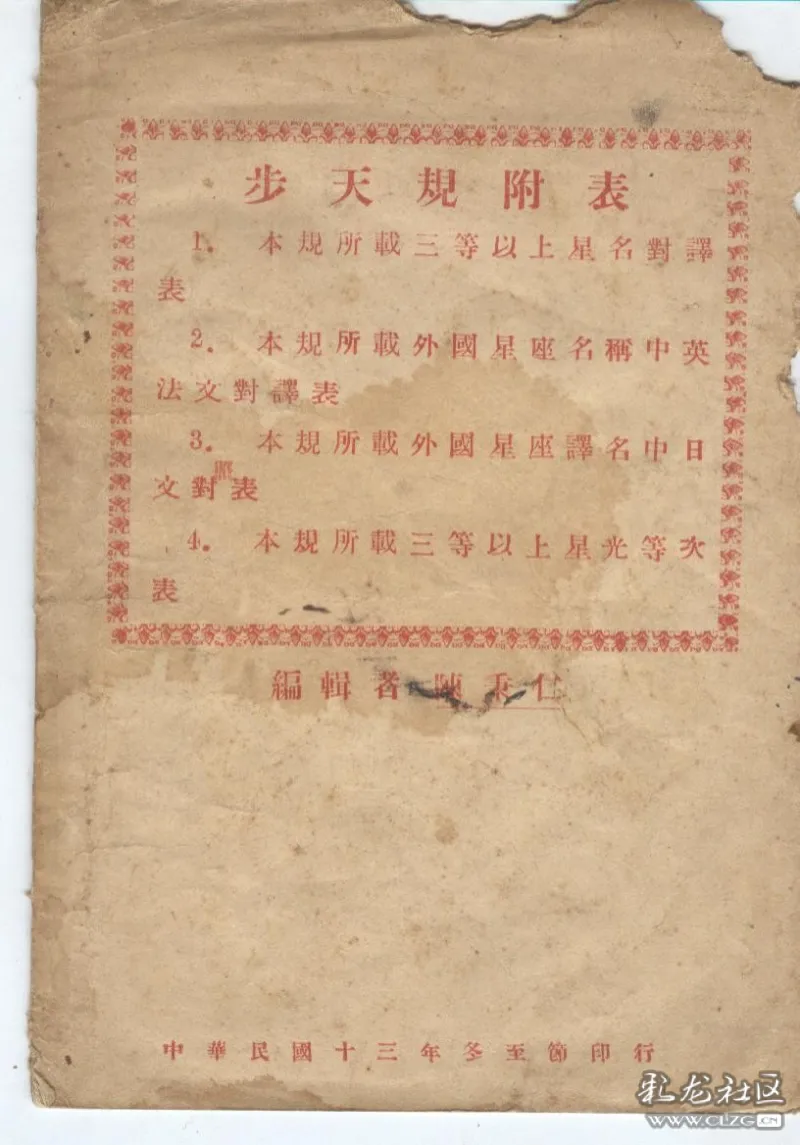 步天規附表
1. 本規所載三等以上星名對譯
表
2. 本規所載外國星座名稱中英
法文對譯表
3. 本規所載外國星座譯名中日
文對照表
4. 本規所載三等以上星光等次
表
編輯者 陳秉仁
中華民國十三年冬至節印行
彩龙社区
WWW.CLZG.CN